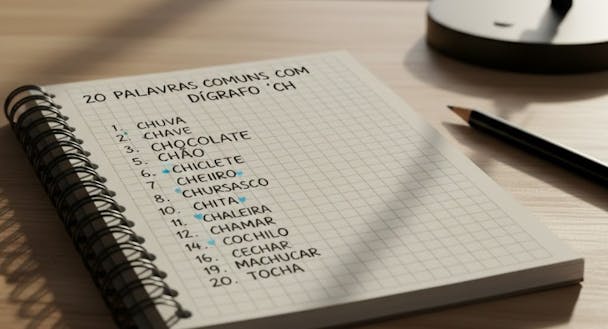 20 PALAVRAS COMUNS COM
DÍGRAFO 'CH
1. CHUVA
2. CHAVE
3. CHOCOLATE
5. CHÃO
6. CHICLETE
7. CHEIIRO
8. CHURSASCO
10. CHITA
11. CHALEIRA
12. CHAMAR
14. COCHILO
16. CECHAR
19. MACHUCAR
20. TOCHA